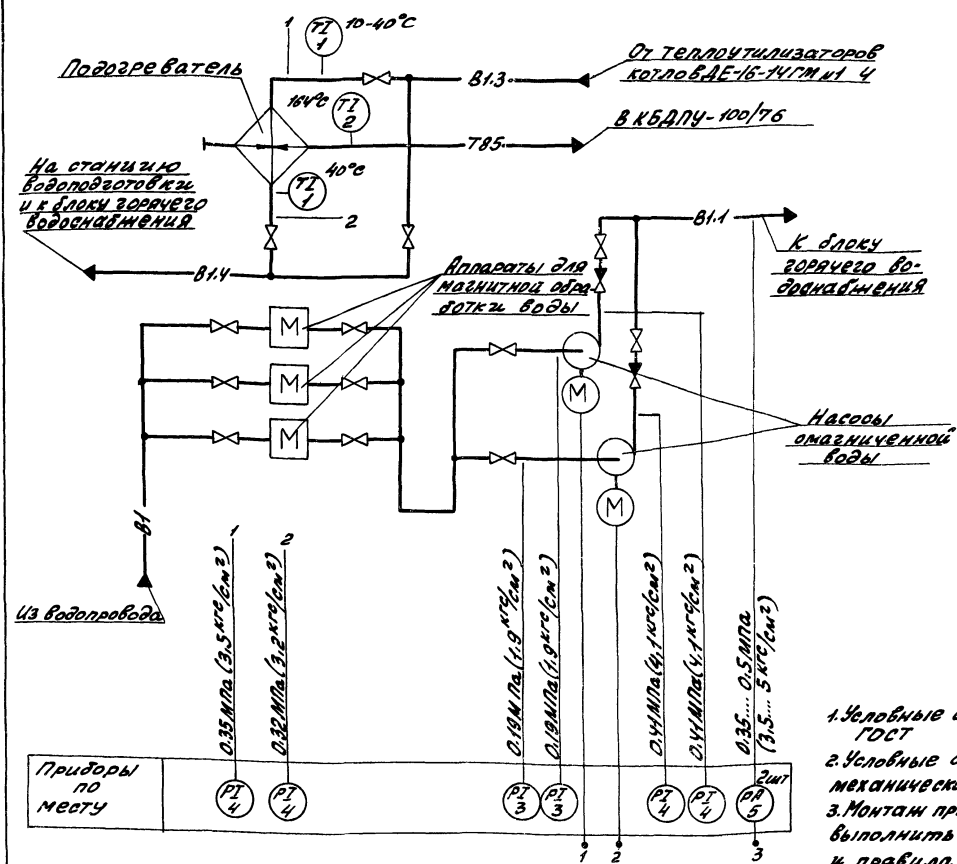 1
TI
1
10-40°C
Подогреватель
В1.3
От теплоутилизаторов
котлов ДЕ-16-14ГМ №1 4
164°C
TI
2
Т85
В КБДПУ-100/76
На станцию
водоподготовки
и к блоку горячего
водоснабжения
TI
1
40°C
2
В1.4
В1.1
К блоку
горячего во-
доснабжения
Аппараты для
магнитной обра
ботки воды
М
М
М
М
М
Насосы
омагниченной
воды
В1
Из водопровода
1
0.35 МПа (3,5 кгс/см²)
2
0.32 МПа (3,2 кгс/см²)
0.19 МПа (1.9 кгс/см²)
0.19 МПа (1.9 кгс/см²)
0.41 МПа (4,1 кгс/см²)
0.41 МПа (4,1 кгс/см²)
0.35.... 0.5 МПа
(3.5.... 5 кгс/см²)
Приборы
по
месту
PI
4
PI
4
PI
3
PI
3
PI
4
PI
4
2шт
РА
5
1
2
3
1. Условные
ГОСТ
2. Условные
механическ
3. Монтаж пр
выполнить
и правила